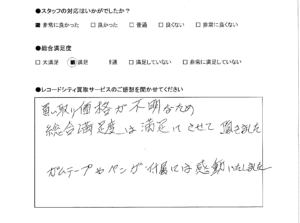 ●スタッフの対応はいかがでしたか？
■非常に良かった □良かった □普通 □良くない □非常に良くない
●総合満足度
□大満足 ■満足 普通 □満足していない □非常に満足していない
●レコードシティ買取サービスのご感想を聞かせてください
買い取り価格が不明なため
総合満足度は満足にさせて頂きました
ガムテープやペンが付属には感動いたしました